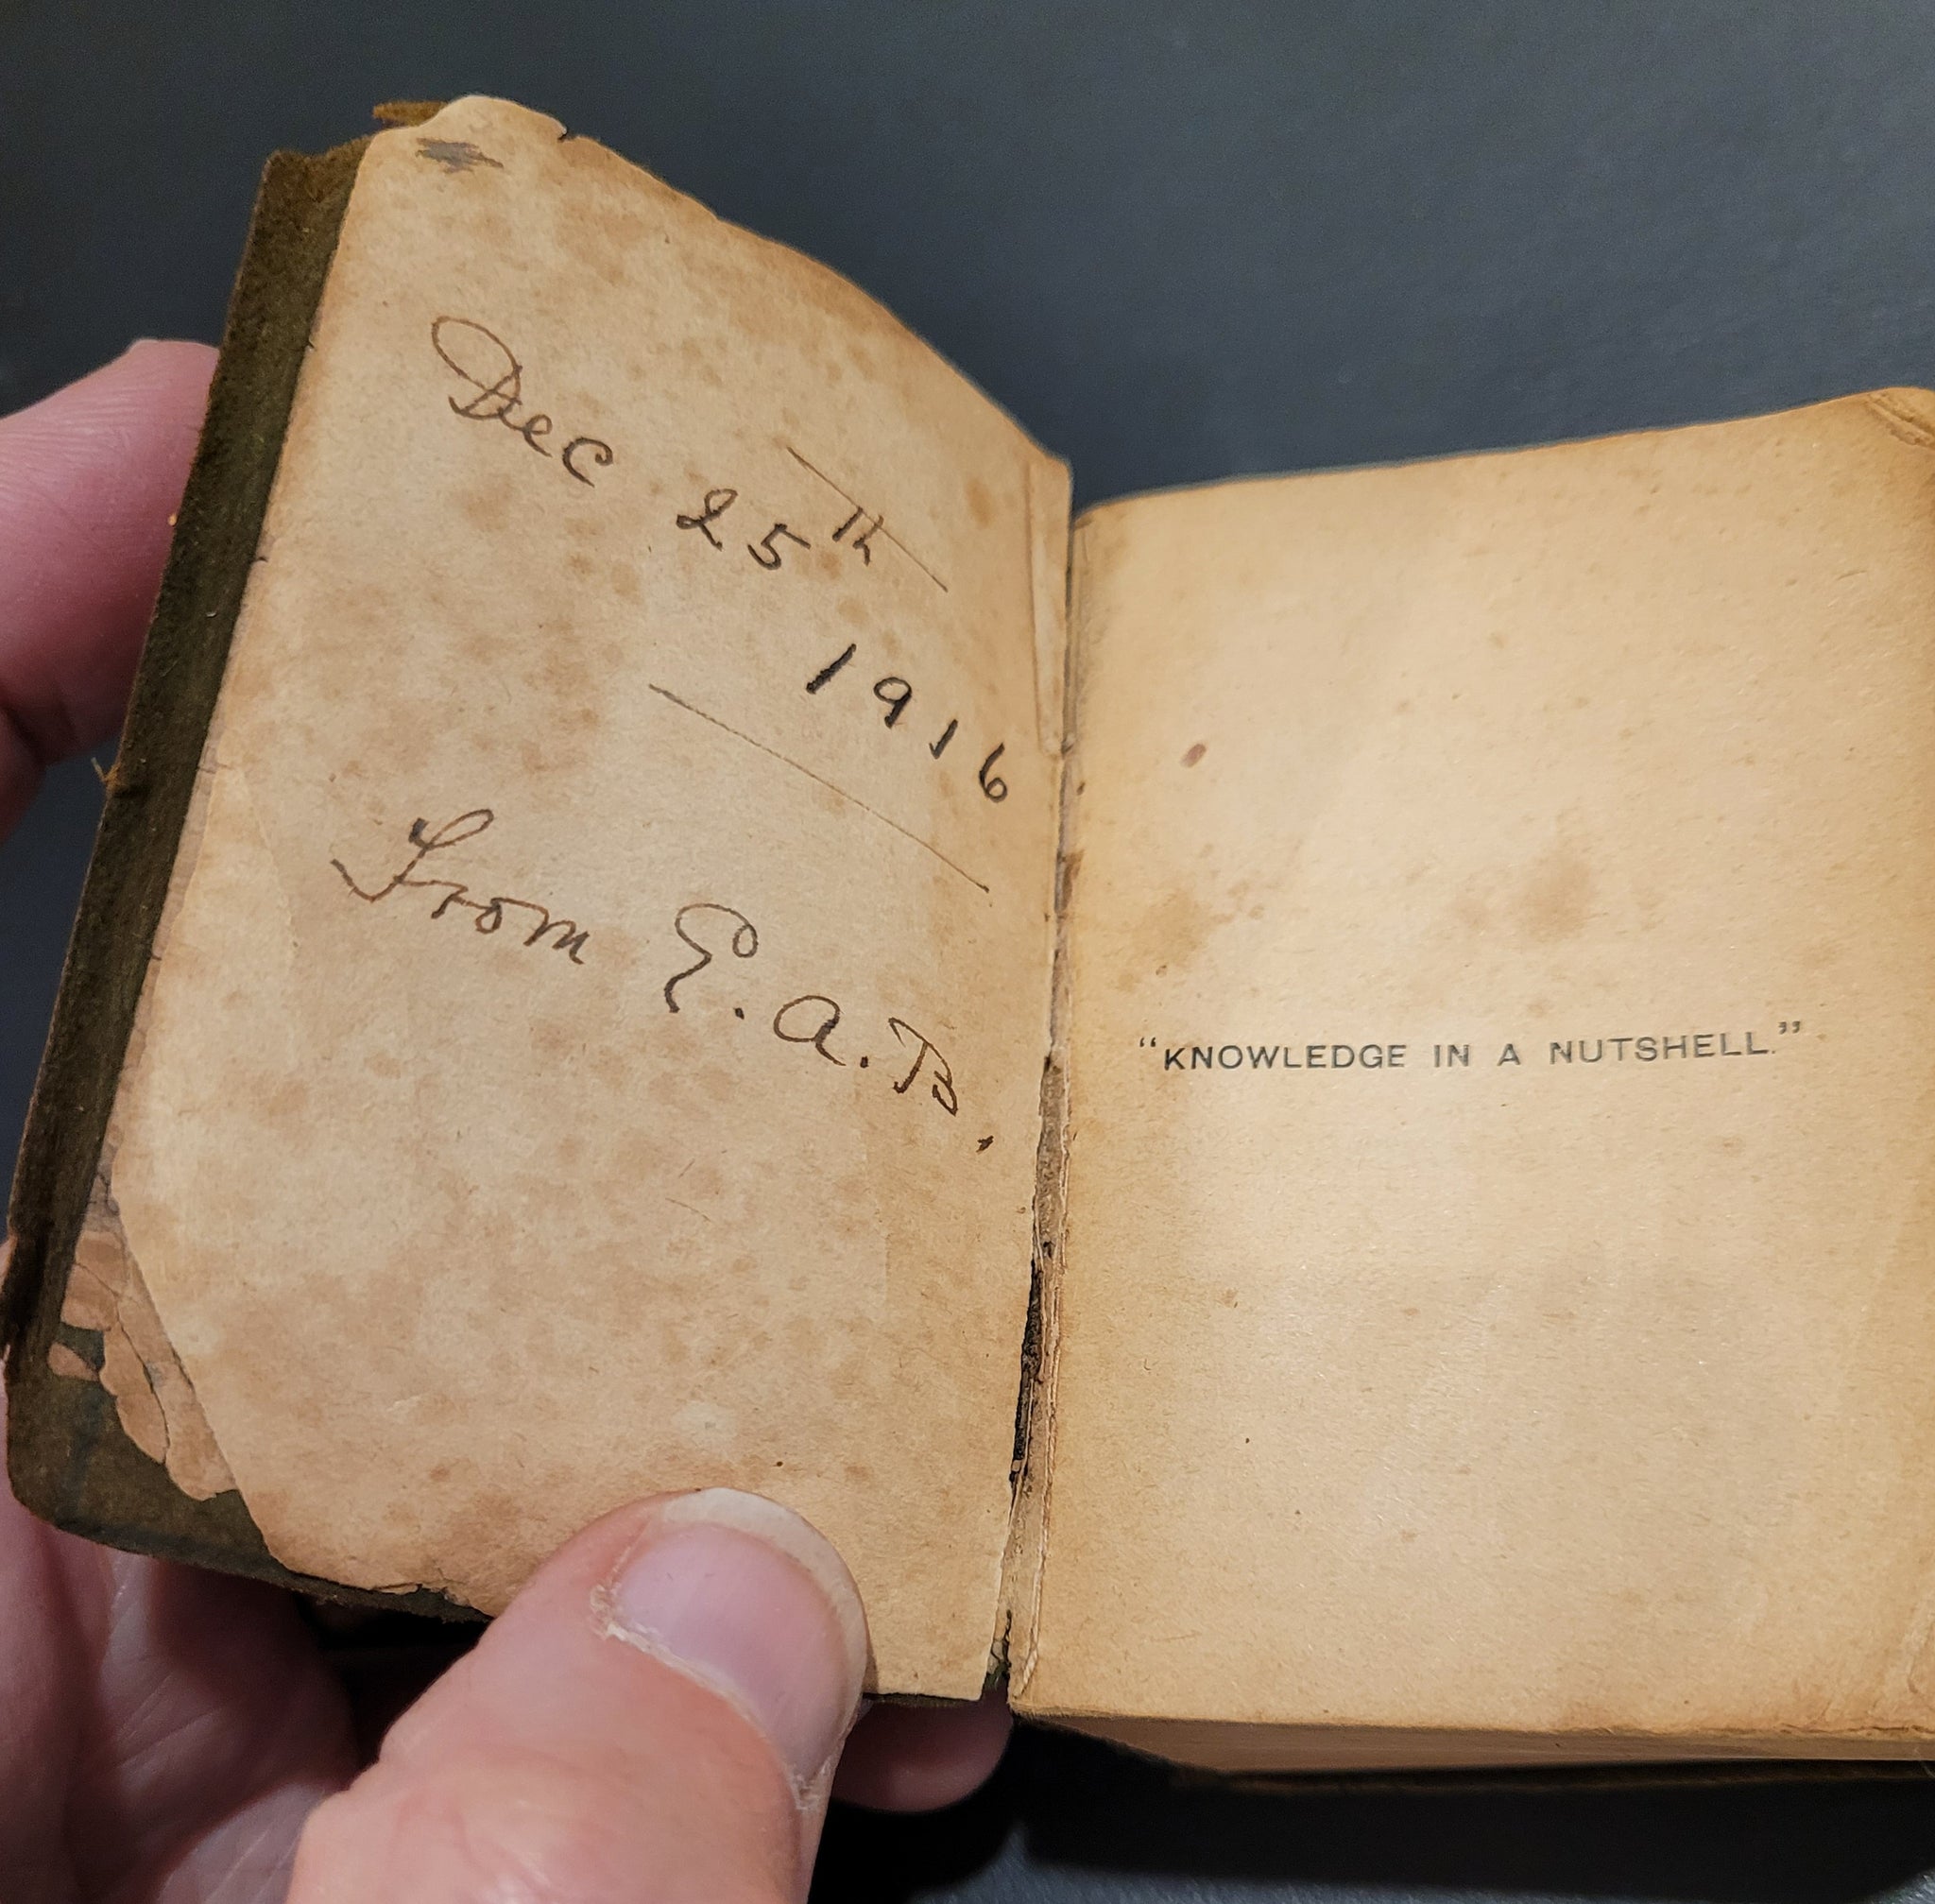 Dec 25th
1916
From E. A. B.
“KNOWLEDGE IN A NUTSHELL.”